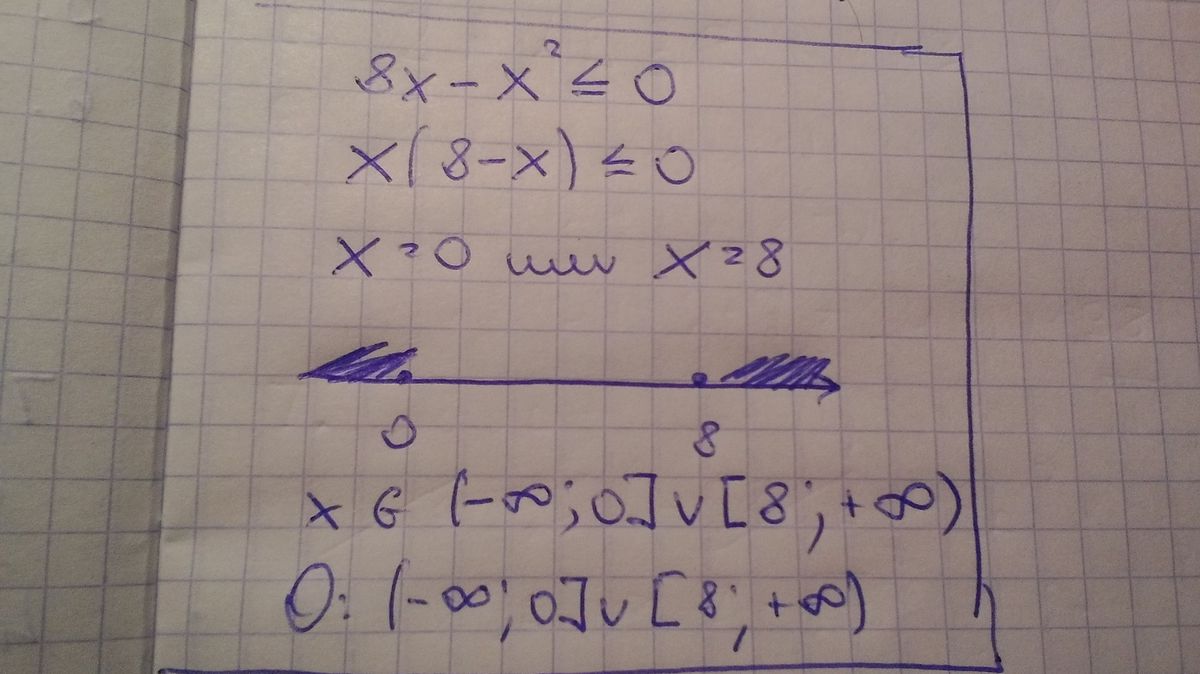 8x - x² ≤ 0
x(8-x) ≤ 0
x=0 или x=8
0 8
x ∈ (-∞; 0] ∪ [8; +∞)
О: (-∞; 0] ∪ [8; +∞)